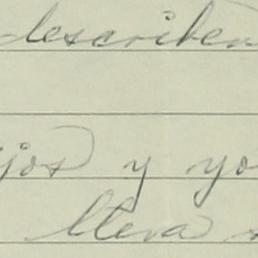 describen
jos y yo
lleva